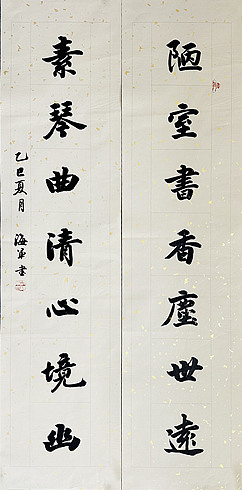 陋室書香塵世遠
素琴曲清心境幽
乙巳夏月
海军書